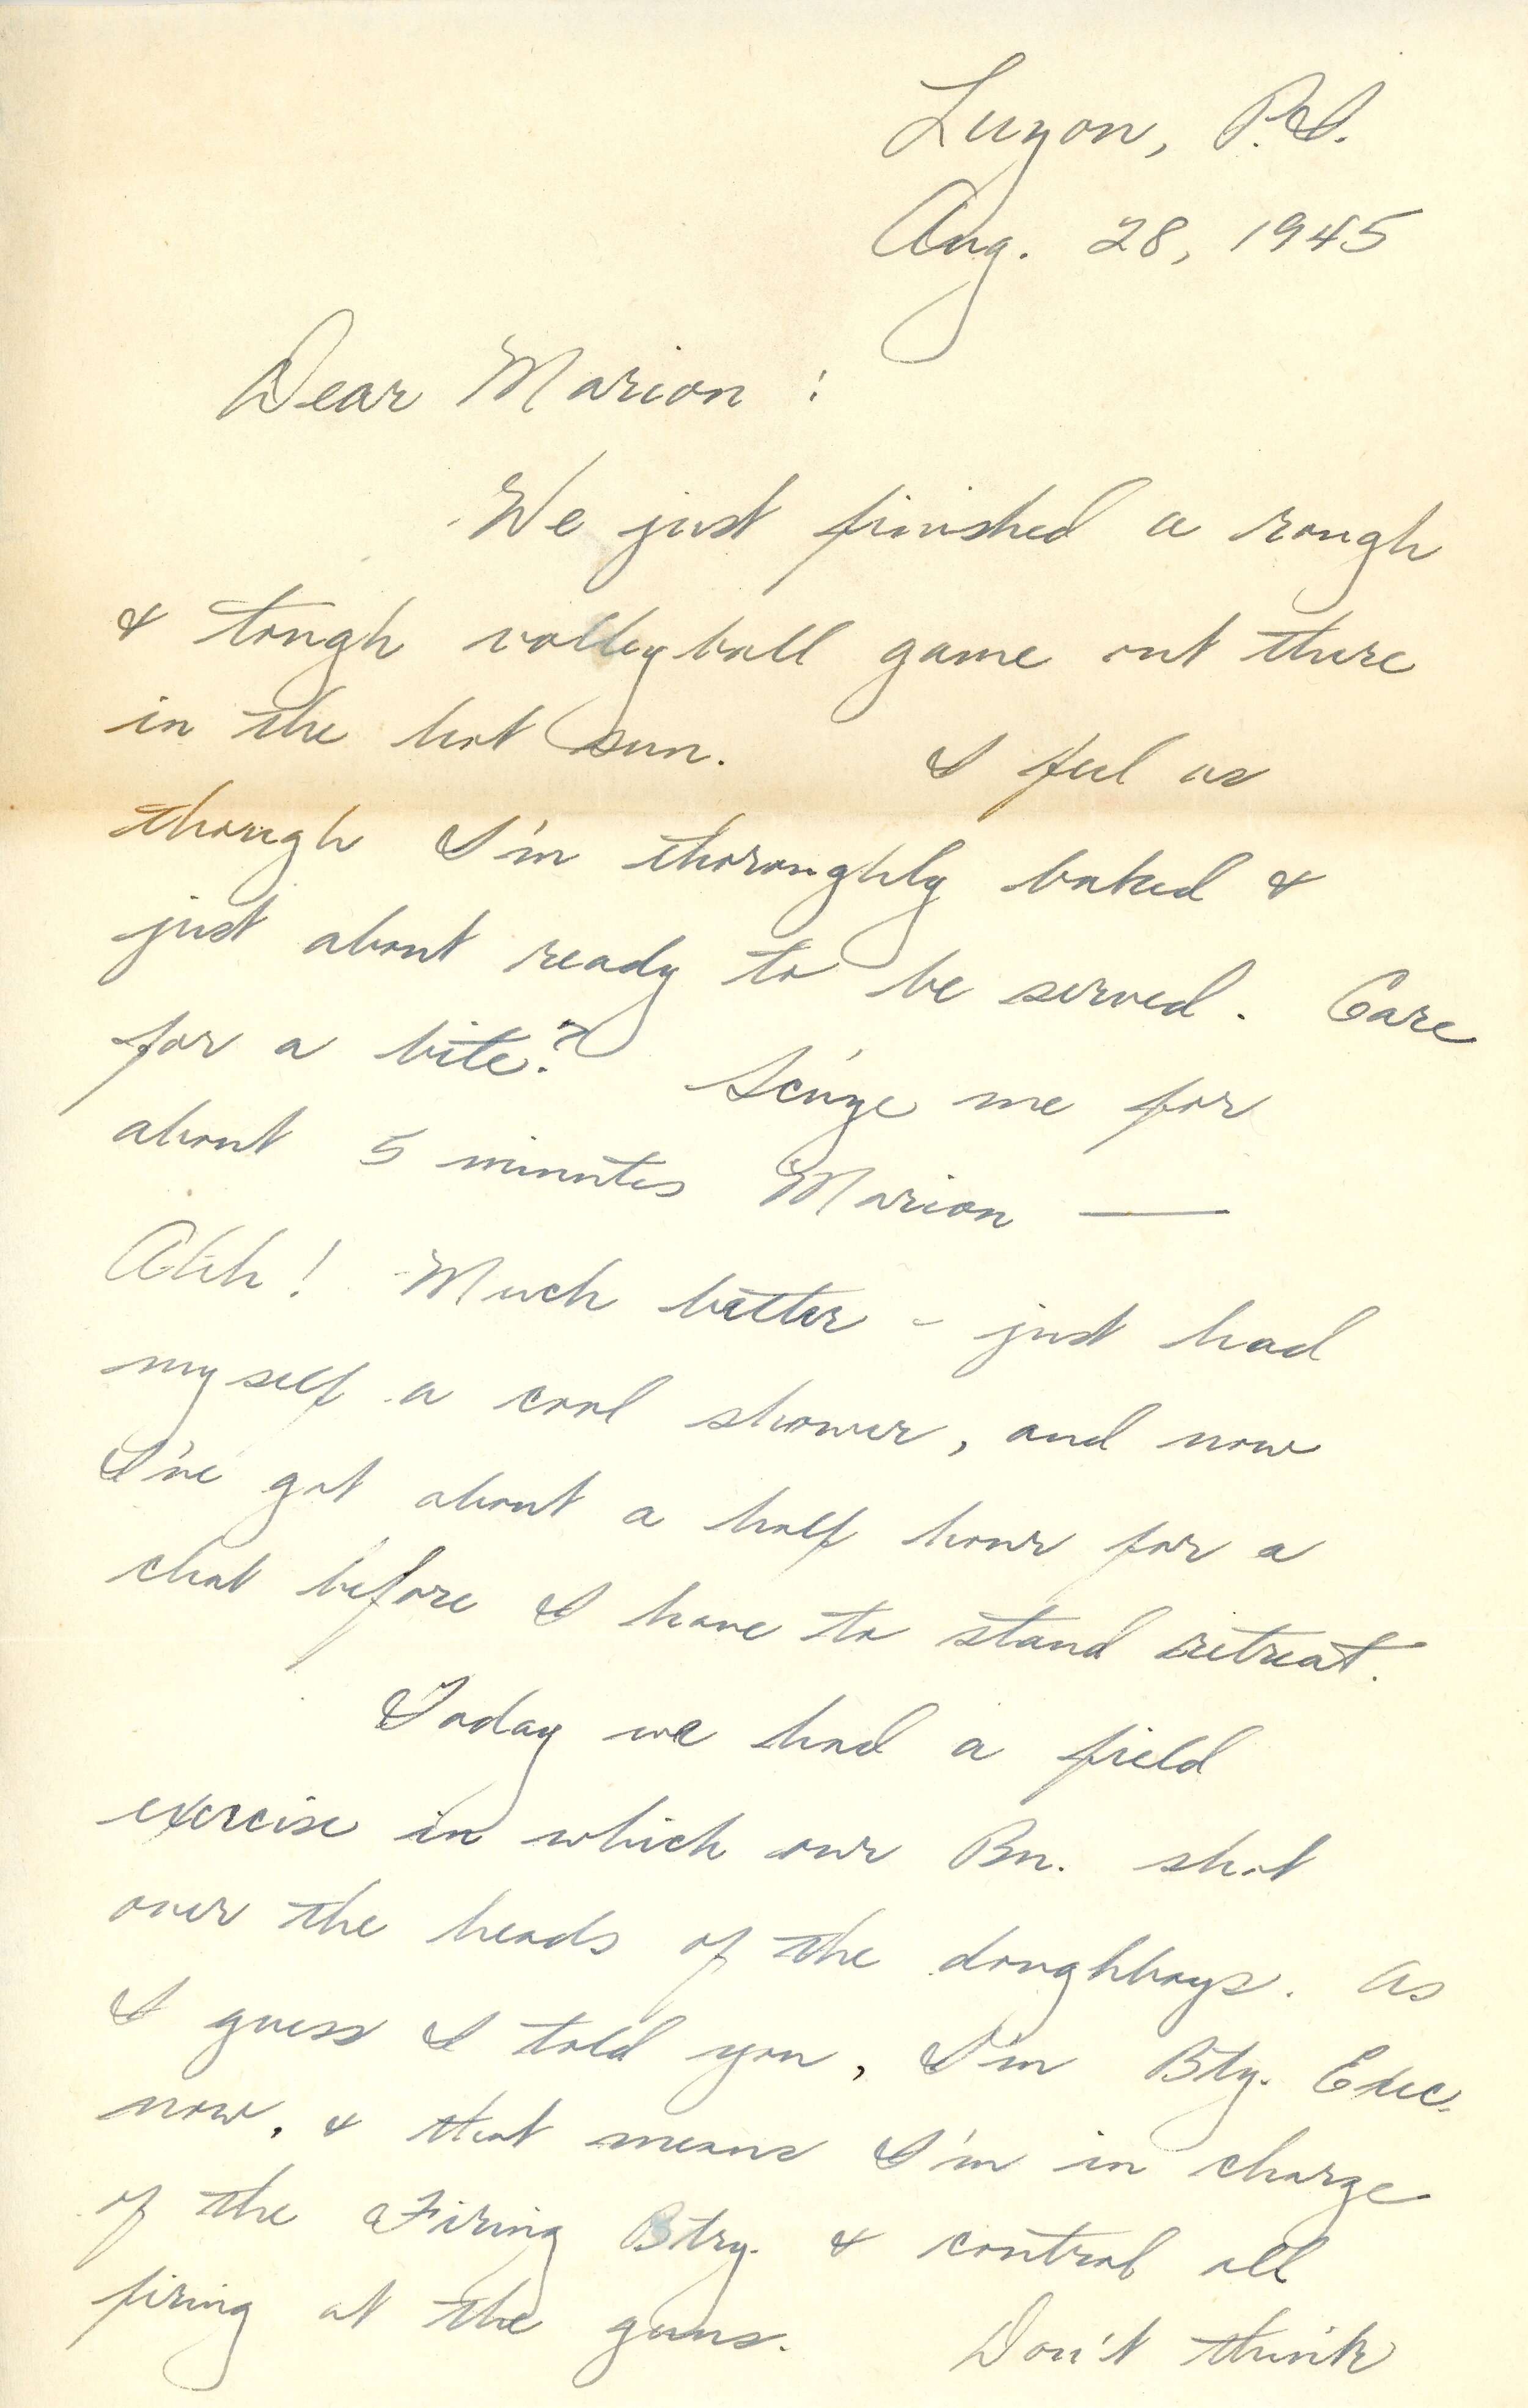 Luzon, P.I.
Aug. 28, 1945
Dear Marion :
We just finished a rough
& tough volleyball game out there
in the hot sun. I feel as
though I'm thoroughly baked &
just about ready to be served. Care
for a bite? Scuze me for
about 5 minutes Marion —
Ahh! Much better - just had
myself a cool shower, and now
I've got about a half hour for a
chat before I have to stand retreat.
Today we had a field
exercise in which our Bn. shot
over the heads of the doughboys. As
I guess I told you, I'm Bty. Exec.
now, & that means I'm in charge
of the Firing Btry. & control all
firing at the guns. Don't think